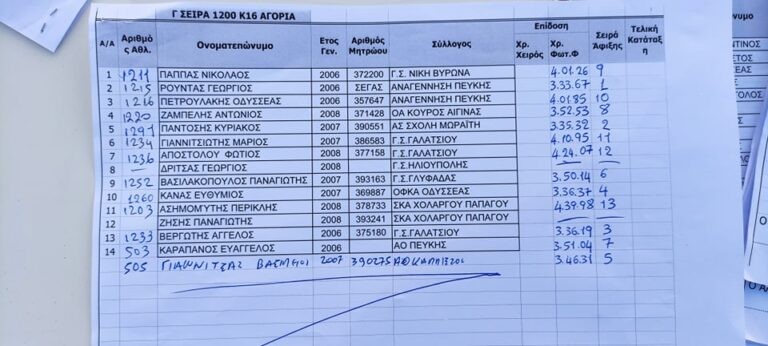 Γ ΣΕΙΡΑ 1200 Κ16 ΑΓΟΡΙΑ
Α/Α Αριθμός Αθλ. Ονοματεπώνυμο Ετος Γεν. Αριθμός Μητρώου Σύλλογος Επίδοση Χρ. Χειρός Χρ. Φωτ.Φ Σειρά Άφιξης Τελική Κατάταξη
1 1211 ΠΑΠΠΑΣ ΝΙΚΟΛΑΟΣ 2006 372200 Γ.Σ. ΝΙΚΗ ΒΥΡΩΝΑ 4.01.26 9
2 1215 ΡΟΥΝΤΑΣ ΓΕΩΡΓΙΟΣ 2006 ΣΕΓΑΣ ΑΝΑΓΕΝΝΗΣΗ ΠΕΥΚΗΣ 3.33.67 1
3 1216 ΠΕΤΡΟΥΛΑΚΗΣ ΟΔΥΣΣΕΑΣ 2006 357647 ΑΝΑΓΕΝΝΗΣΗ ΠΕΥΚΗΣ 4.01.85 10
4 1220 ΖΑΜΠΕΛΗΣ ΑΝΤΩΝΙΟΣ 2008 371428 ΟΑ ΚΟΥΡΟΣ ΑΙΓΙΝΑΣ 3.52.53 8
5 1291 ΠΑΝΤΟΣΗΣ ΚΥΡΙΑΚΟΣ 2007 390551 ΑΣ ΣΧΟΛΗ ΜΩΡΑΪΤΗ 3.35.32 2
6 1234 ΓΙΑΝΝΙΤΣΙΩΤΗΣ ΜΑΡΙΟΣ 2007 386583 Γ.Σ.ΓΑΛΑΤΣΙΟΥ 4.10.95 11
7 1236 ΑΠΟΣΤΟΛΟΥ ΦΩΤΙΟΣ 2008 377158 Γ.Σ.ΓΑΛΑΤΣΙΟΥ 4.24.07 12
8 — ΔΡΙΤΣΑΣ ΓΕΩΡΓΙΟΣ 2008 Γ.Σ.ΗΛΙΟΥΠΟΛΗΣ
9 1252 ΒΑΣΙΛΑΚΟΠΟΥΛΟΣ ΠΑΝΑΓΙΩΤΗΣ 2007 393163 Γ.Σ.ΓΛΥΦΑΔΑΣ 3.50.14 6
10 1260 ΚΑΝΑΣ ΕΥΘΥΜΙΟΣ 2007 369887 ΟΦΚΑ ΟΔΥΣΣΕΑΣ 3.36.37 4
11 1203 ΑΣΗΜΟΜΥΤΗΣ ΠΕΡΙΚΛΗΣ 2008 378733 ΣΚΑ ΧΟΛΑΡΓΟΥ ΠΑΠΑΓΟΥ 4.39.98 13
12 ΖΗΣΗΣ ΠΑΝΑΓΙΩΤΗΣ 2008 393241 ΣΚΑ ΧΟΛΑΡΓΟΥ ΠΑΠΑΓΟΥ
13 1233 ΒΕΡΓΩΤΗΣ ΑΓΓΕΛΟΣ 2006 375180 Γ.Σ.ΓΑΛΑΤΣΙΟΥ 3.36.19 3
14 503 ΚΑΡΑΠΑΝΟΣ ΕΥΑΓΓΕΛΟΣ 2006 ΑΟ ΠΕΥΚΗΣ 3.51.04 7
505 ΓΙΑΝΝΙΤΣΑΣ 2007 390275 3.46.31 5